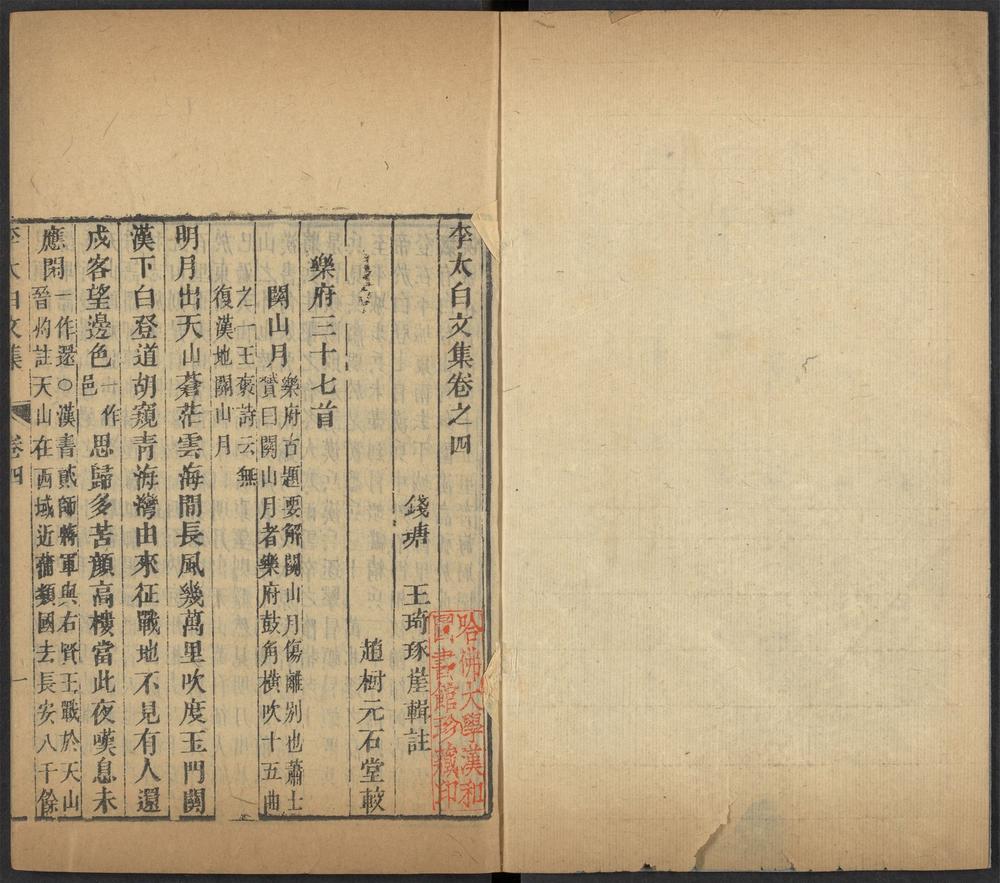 李太白文集卷之四
錢塘 王琦琢崖輯註
趙樹元石堂較
樂府三十七首
關山月
樂府古題要解關山月傷離别也蕭士
贇曰關山月者樂府鼓角橫吹十五曲
之一王褒詩云無
復漢地關山月
明月出天山蒼茫雲海間長風幾萬里吹度玉門關
漢下白登道胡窺青海灣由來征戰地不見有人還
戍客望邊色
一作
邑
思歸多苦顏高樓當此夜嘆息未
應閒
一作還○漢書貳師將軍與右賢王戰於天山
晉灼註天山在西域近蒲類國去長安八千餘
李太白文集 卷四 一
哈佛大學漢和
圖書館珍藏印